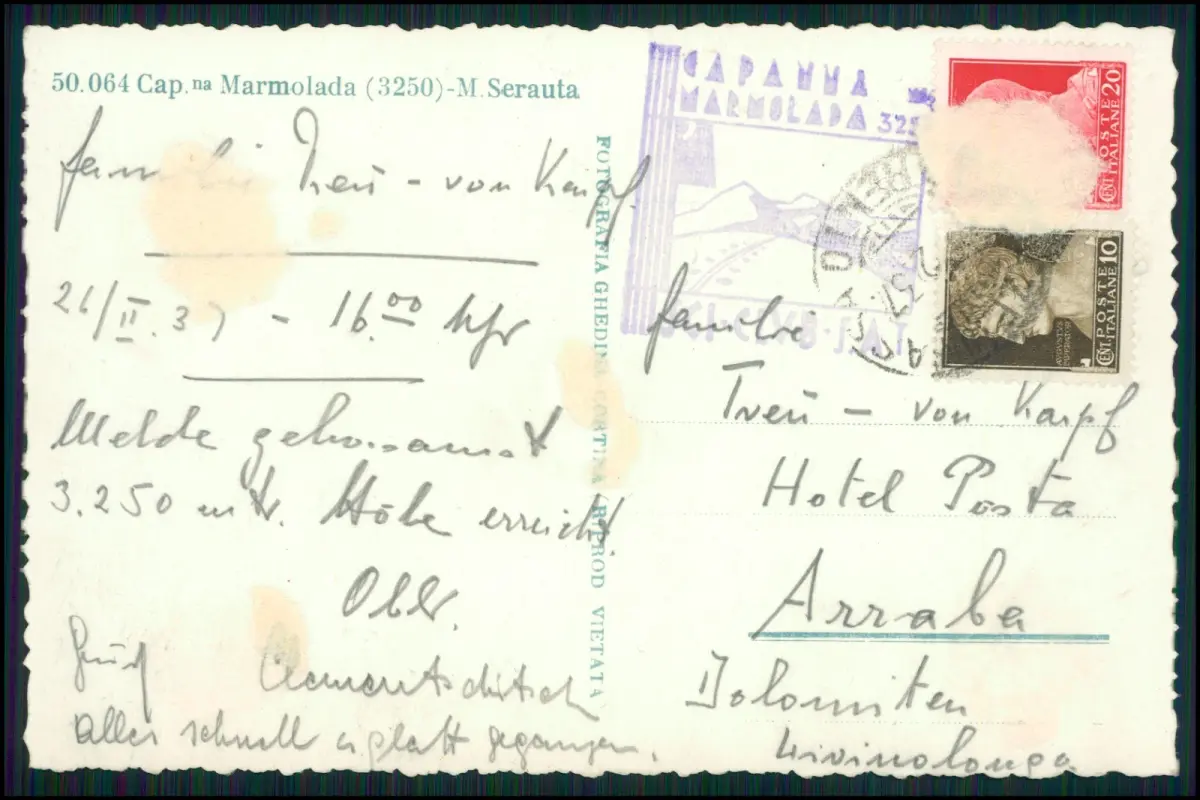 50.064 Cap.na Marmolada (3250)-M. Serauta
familie Treu - von Karpf.
26/II.37 - 16.00 Uhr
Melde gehorsamst
3.250 mtr. Höhe erreicht.
Obll.
Gruß
alles schnell u glatt gegangen.
FOTOGRAFIA GHEDINA CORTINA RIPROD VIETATA
CAPANNA
MARMOLADA 325
SCI-CLUB-SAT
POSTE ITALIANE CENT. 20
POSTE ITALIANE CENT. 10
familie
Treu - von Karpf
Hotel Posta
Arraba
Dolomiten
Livinalonga